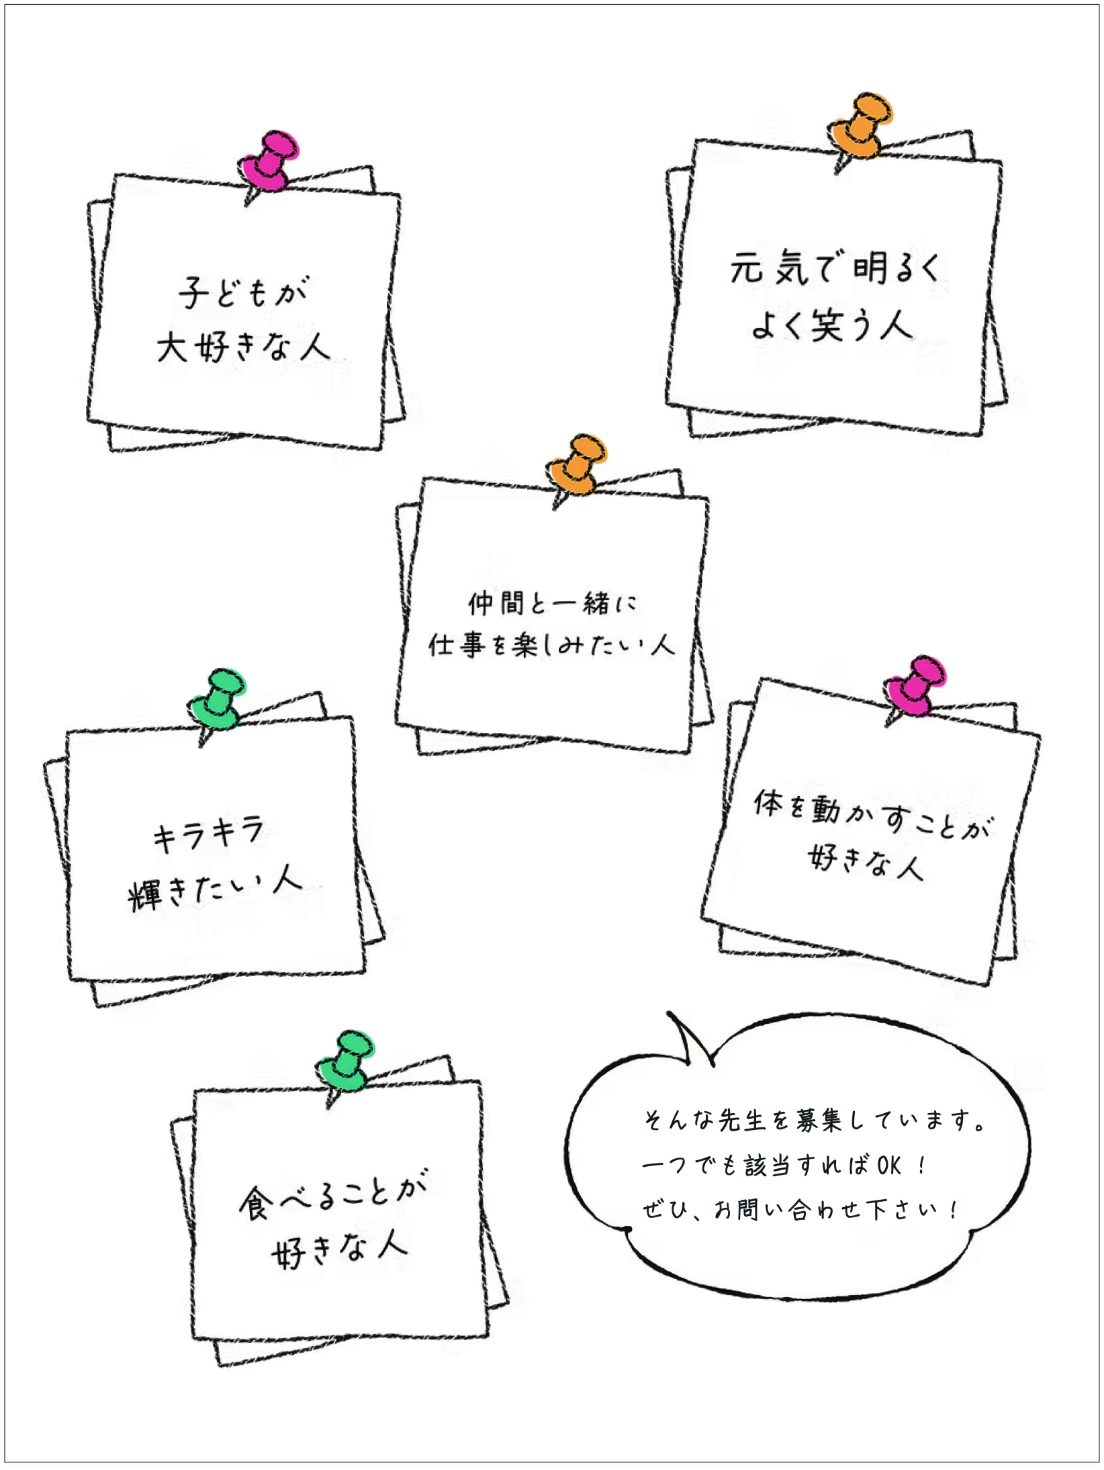 子どもが
大好きな人
元気で明るく
よく笑う人
仲間と一緒に
仕事を楽しみたい人
キラキラ
輝きたい人
体を動かすことが
好きな人
食べることが
好きな人
そんな先生を募集しています。
一つでも該当すればOK！
ぜひ、お問い合わせ下さい！